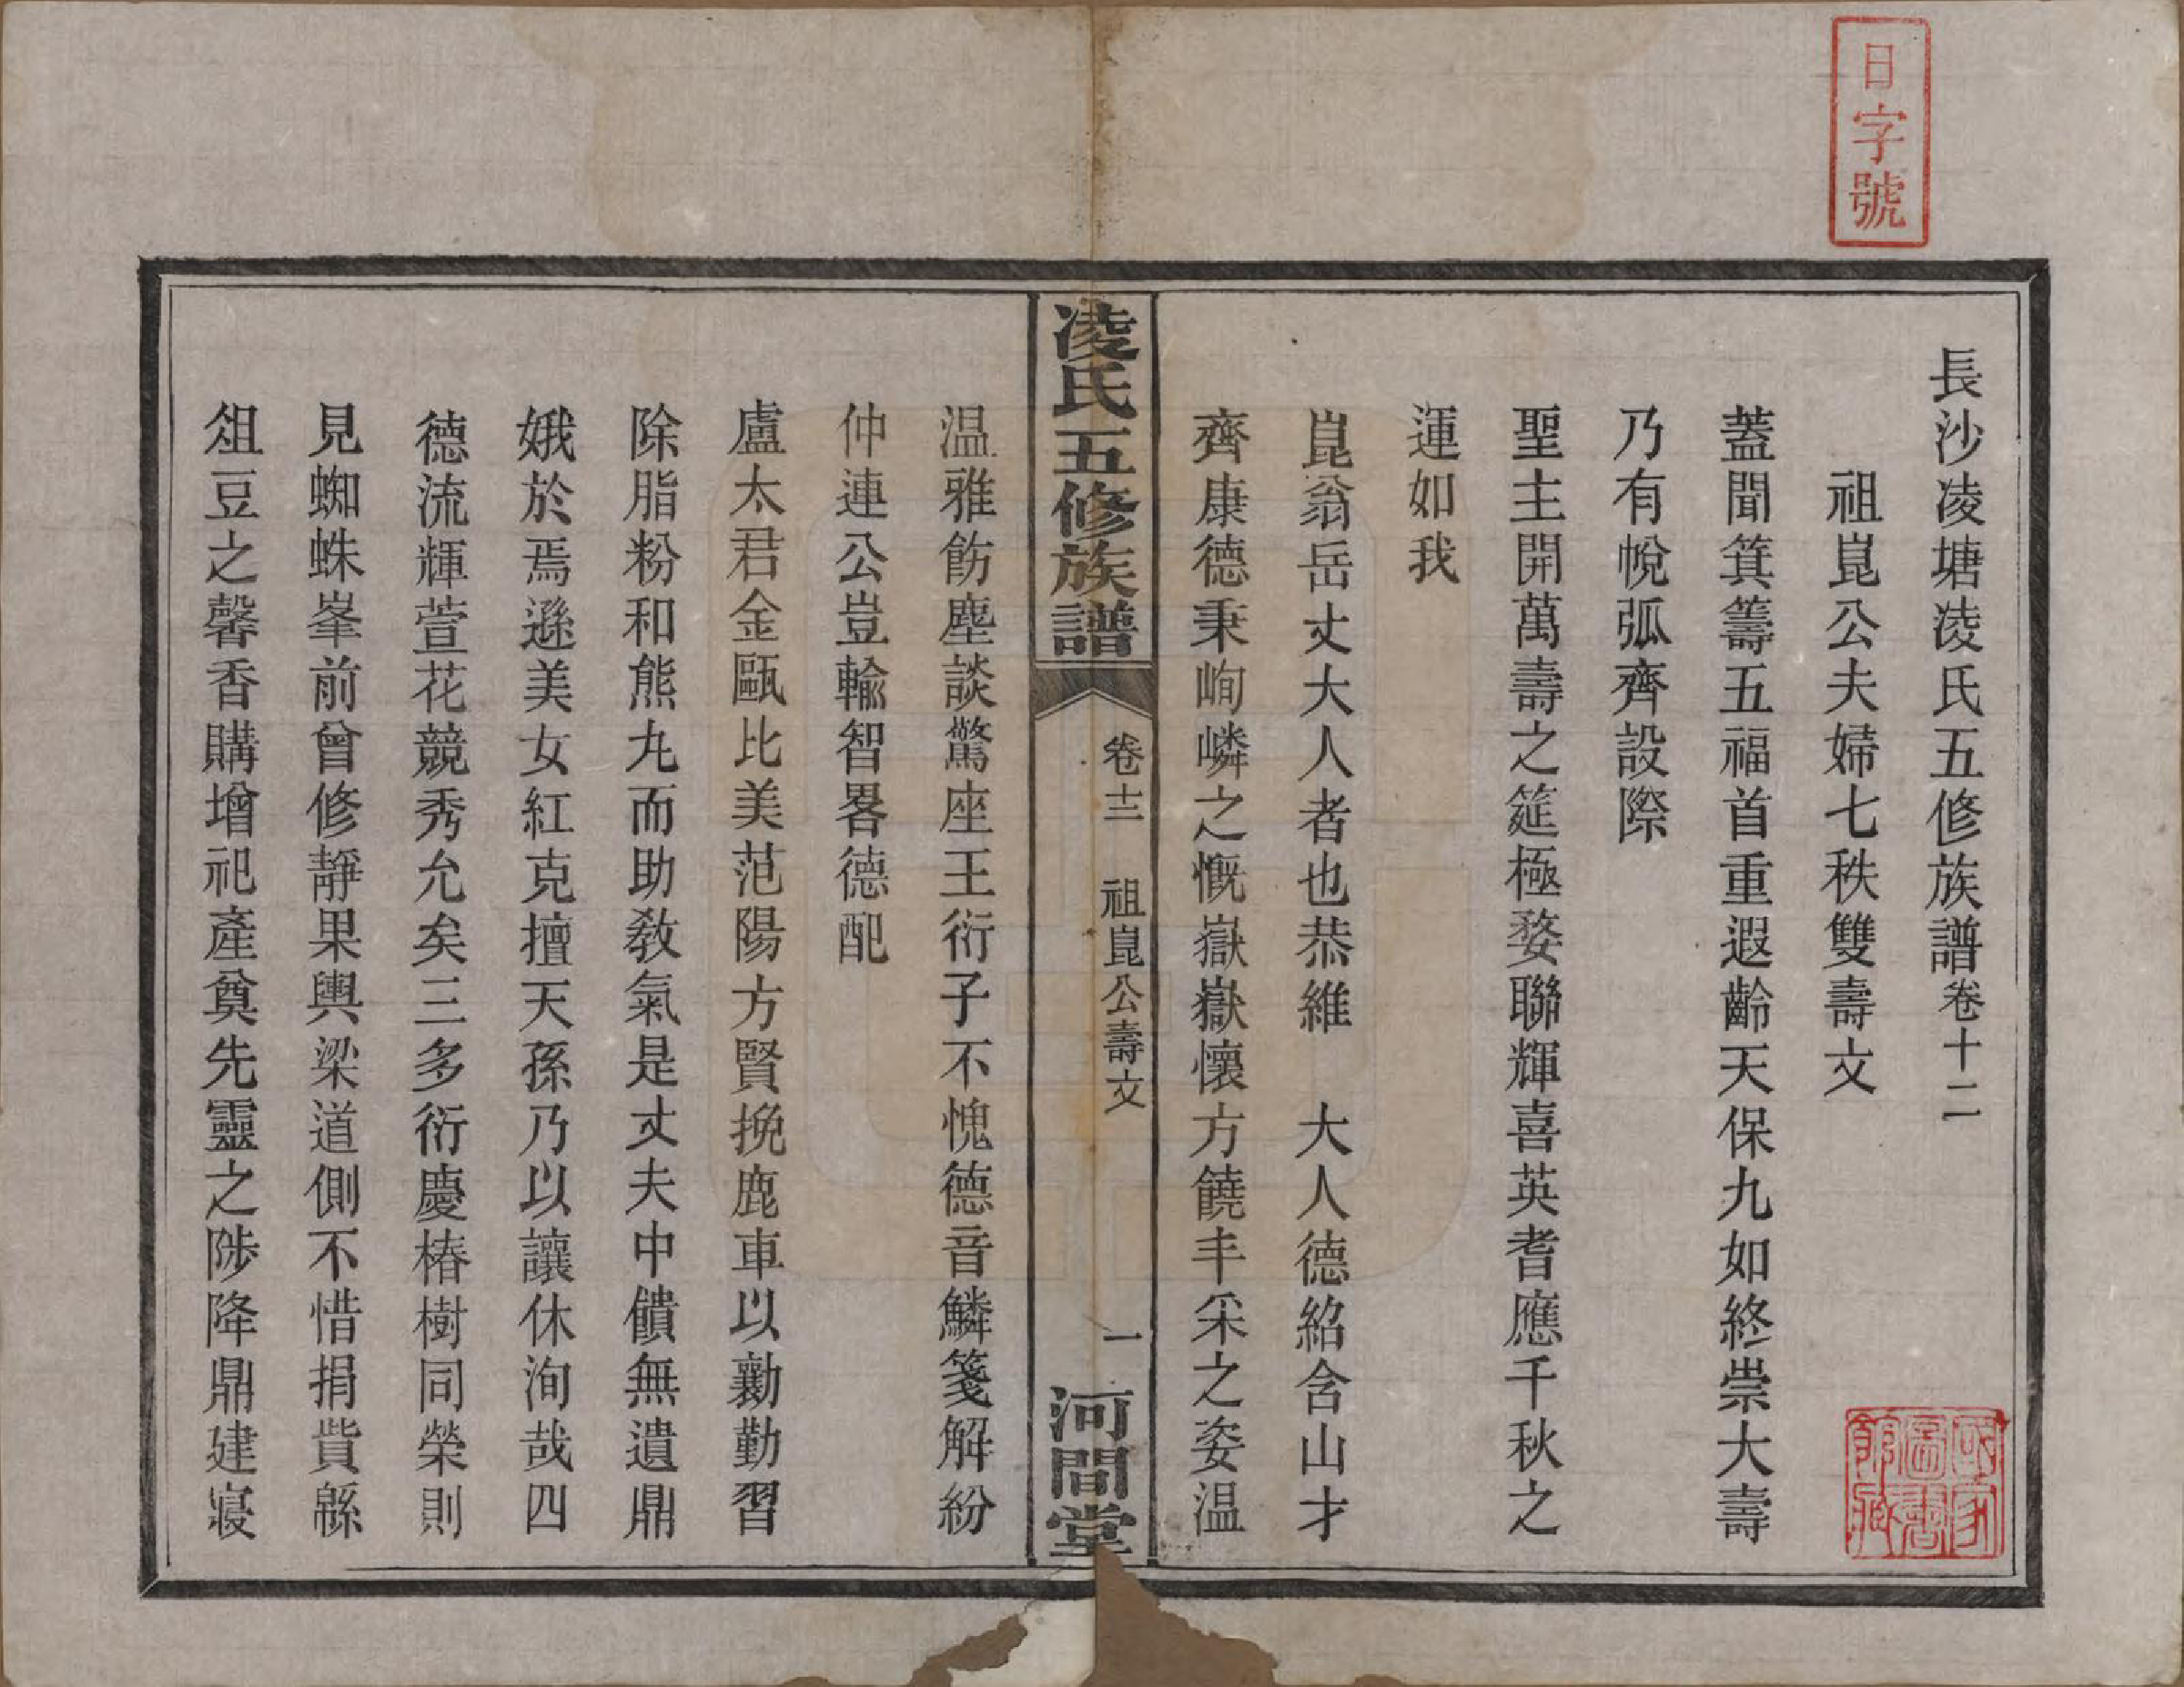 日字號
長沙凌塘凌氏五修族譜卷十二
祖崑公夫婦七秩雙壽文
蓋聞箕籌五福首重遐齡天保九如終崇大壽
乃有帨弧齊設際
聖主開萬壽之筵極婺聯輝喜英耆應千秋之
運如我
崑翁岳丈大人者也恭維　大人德紹含山才
齊康德秉峋嶙之慨嶽嶽懷方饒丰采之姿温
凌氏五修族譜
卷十二　祖崑公壽文
一
河間堂
温雅飭塵談驚座王衍子不愧德音鱗箋解紛
仲連公豈輸智畧德配
盧太君金甌比美范陽方賢挽鹿車以勷勤習
除脂粉和熊丸而助教氣是丈夫中饋無遺鼎
娥於焉遜美女紅克擅天孫乃以讓休洵哉四
德流輝萱花競秀允矣三多衍慶椿樹同榮則
見蜘蛛峯前曾修靜果輿梁道側不惜捐貲緜
俎豆之馨香購增祀產奠先靈之陟降鼎建寢
國家圖書館藏